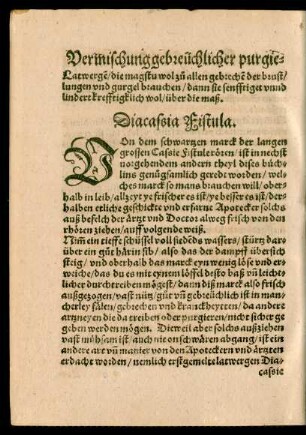 Vermischung gebreüchlicher purgie-
Latwergē/die magstu wol zů allen gebrechē der brust/
lungen vnd gurgel brauchen/dann sie senfftiget vnnd
lindert krefftigklich wol/über die maß.
Diacassia Fistula.
VOn dem schwartzen marck der langen
grossen Cassie Fistule rören/ist in nechst
vorgehendem andern theyl dises büch-
lins genůgsamlich geredt worden/wel-
ches marck so mans brauchen will/ober-
halb in leib/allzeyt ye frischer es ist/ye besser es ist/des
halben etliche geschickte vnd erfarne Apotecker solchs
auß befelch der ärtzt vnd Doctos alweg frisch von den
rhören ziehen/auff volgende weiß.
Nim ein tieffe schüssel voll siedēds wassers/stürtz dar-
über ein gůt härin sib/also das der dampff übersich
steig/vnd oberhalb das marck eyn wenig löse vnd er-
weiche/das du es mit eynem löffel desto baß vñ leichte
licher durchtreiben mögest/dann diß marck also frisch
außgezogen/vast nütz/gůt vñ gebreüchlich ist in man
cherley fälen/gebrechen vnd kranckheyten/da andere
artzneyen die da treiben oder purgieren/nicht sicher ge
geben werden mögen. Dieweil aber solchs außziehen
vast mühsam ist/auch nie on schwären abgang/ist ein
andere art vñ manier von den Apoteckern vnd ärtzten
erdacht worden/nemlich erstgemelte latwergen Dia-
cassie